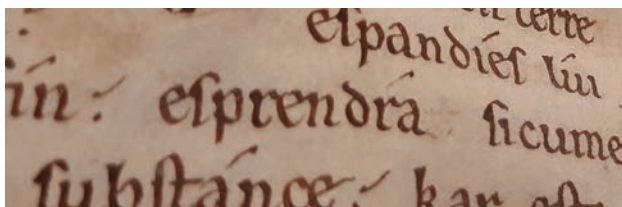 terre
eſpandíeſ
ín: eſprendrá ſicume
ſubſtánce: kar